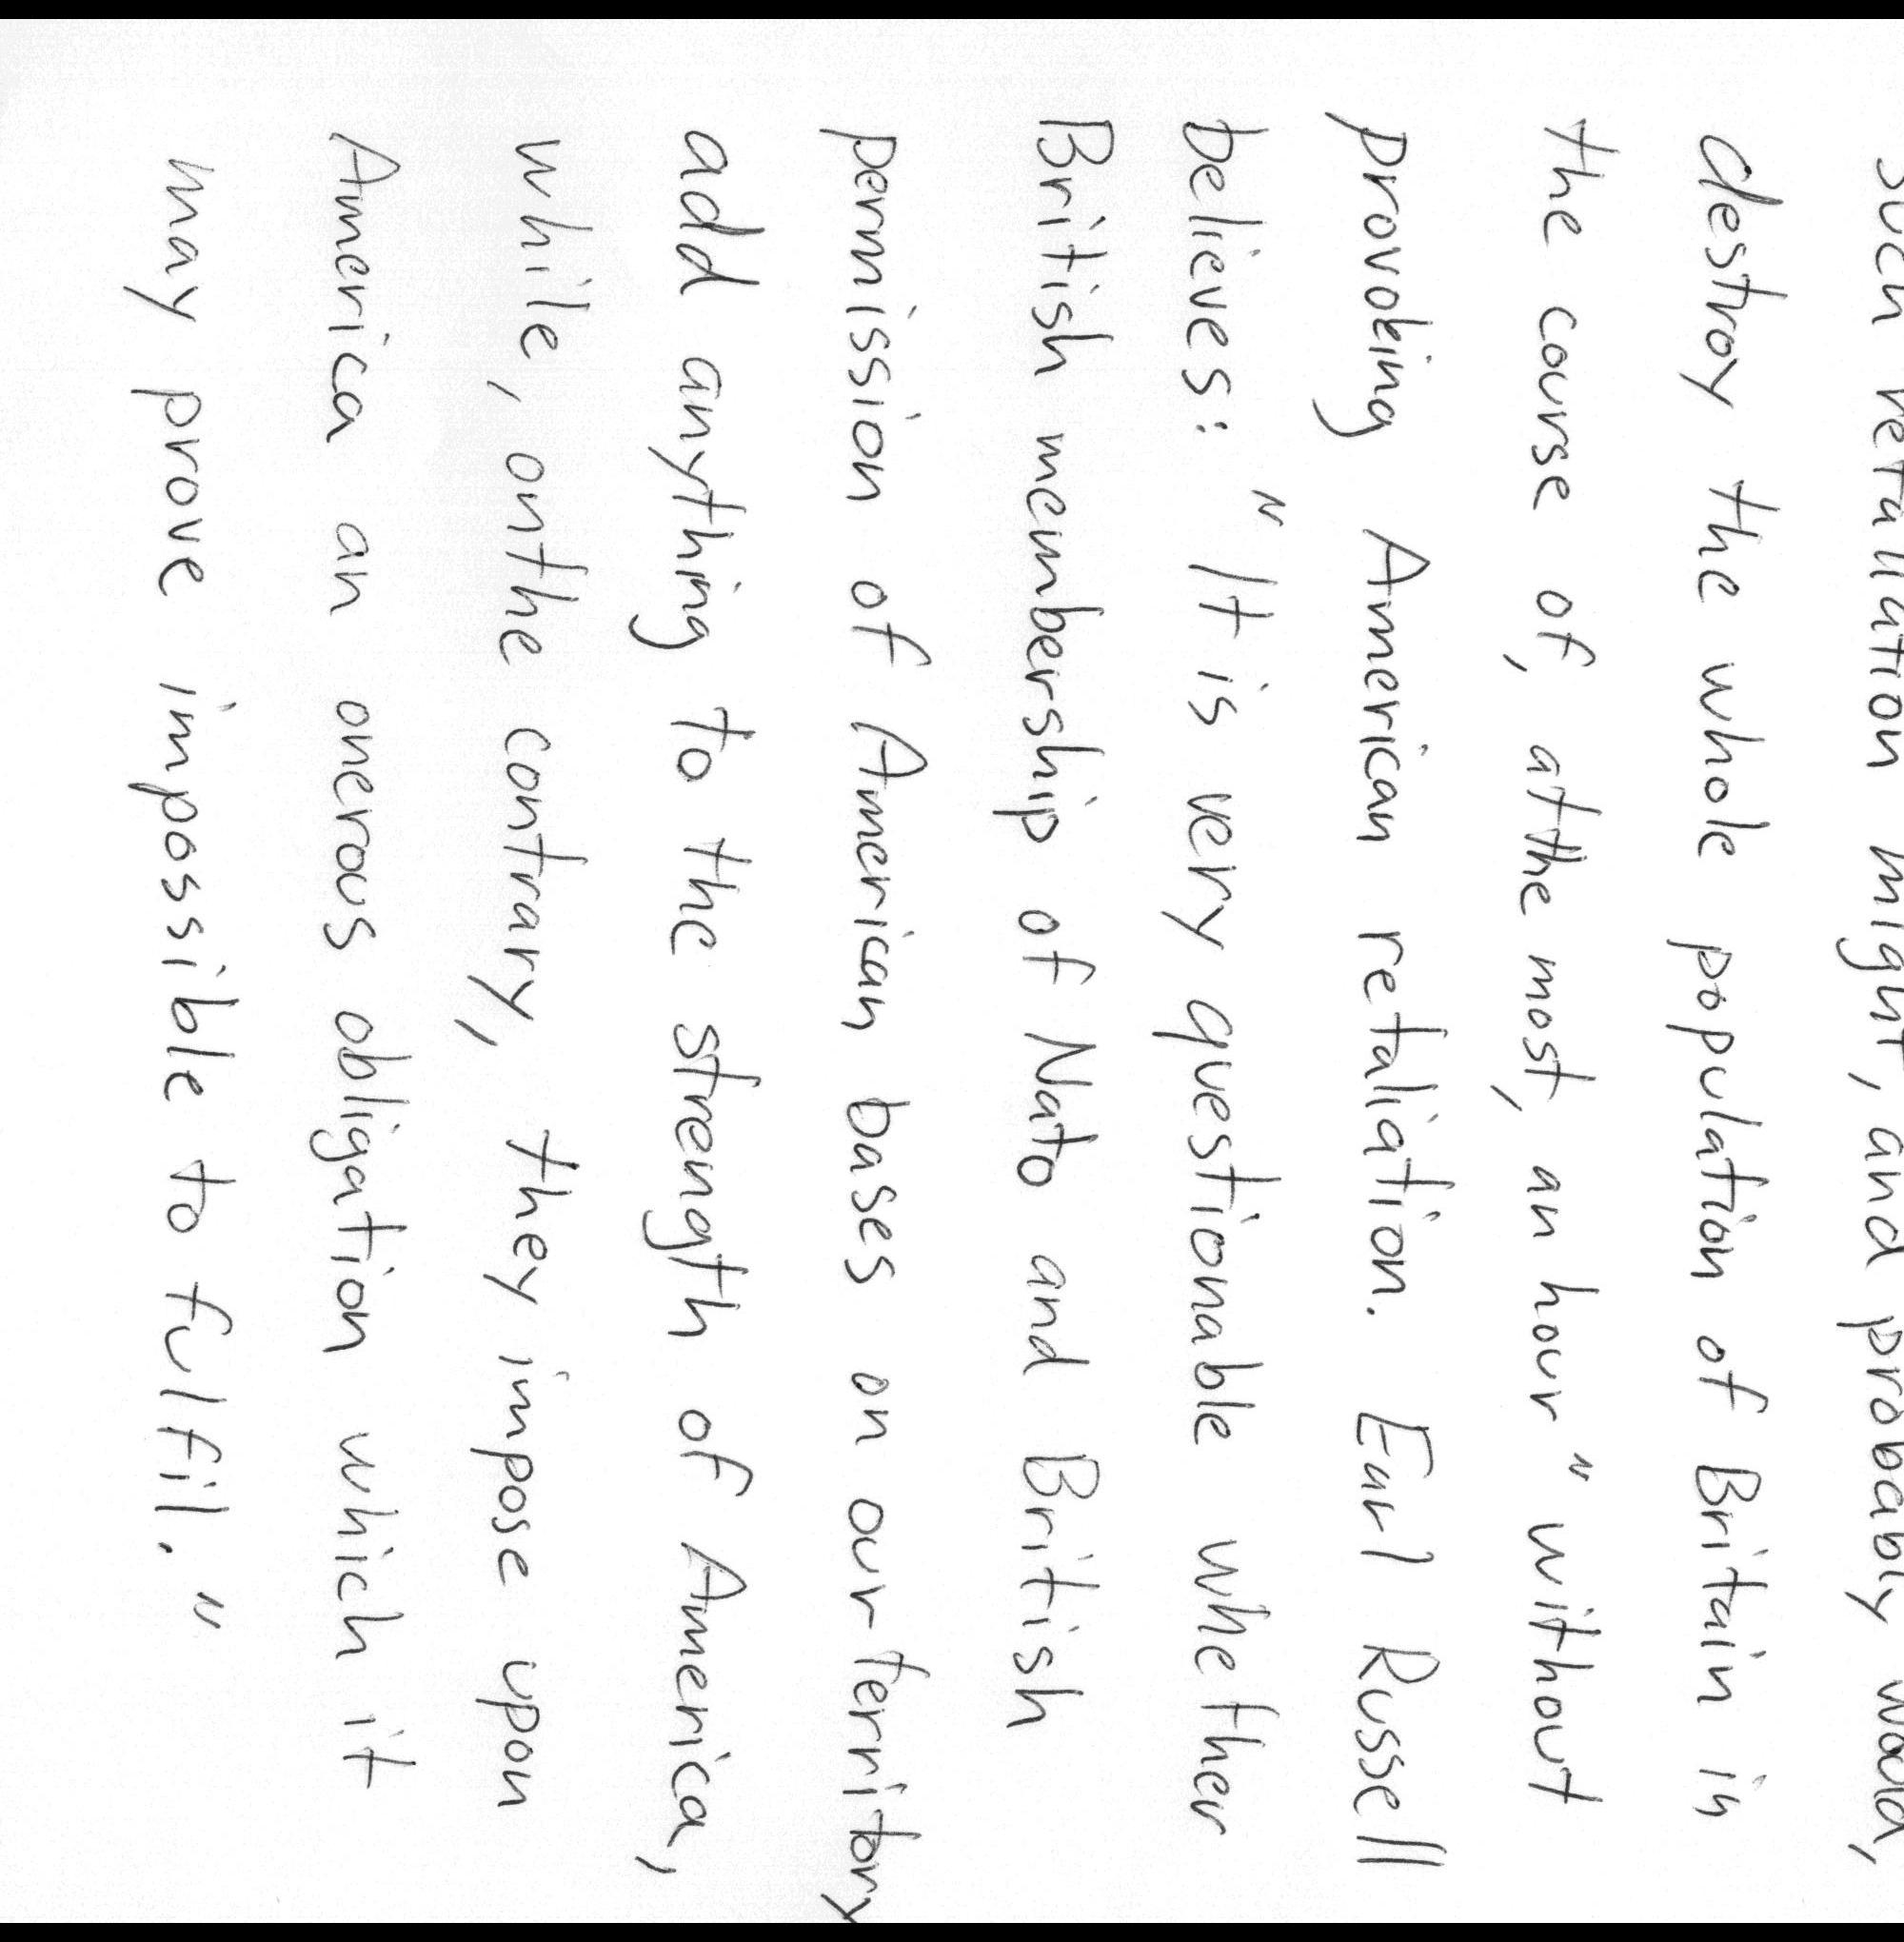 such retaliation might, and probably would,
destroy the whole population of Britain in
the course of, at the most, an hour" without
provoking American retaliation. Earl Russell
believes: "It is very questionable whether
British membership of Nato and British
permission of American bases on our territory
add anything to the strength of America,
while, on the contrary, they impose upon
America an onerous obligation which it
may prove impossible to fulfil."